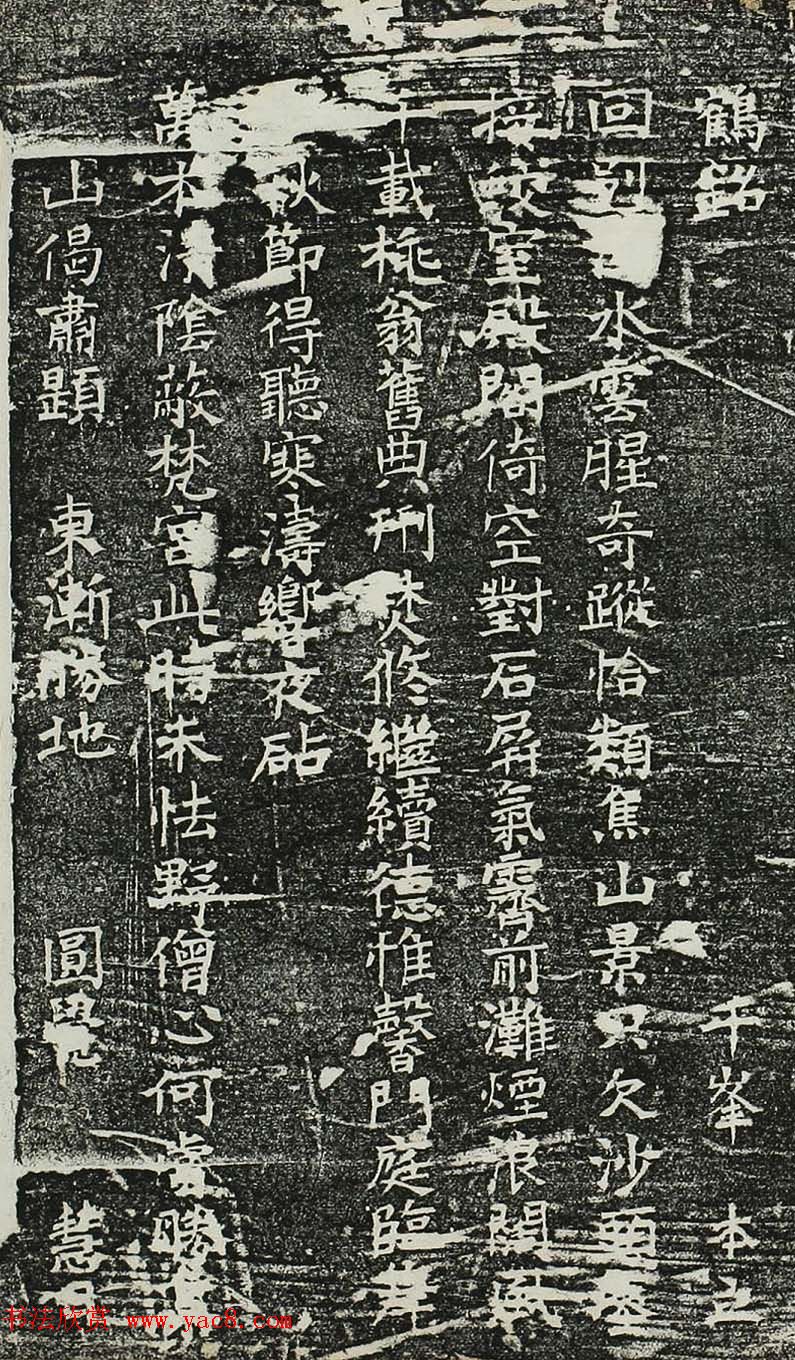 鶴銘 千峯 本
回 水雲腥奇蹤恰類焦山景只欠沙頭
接 室殿閣倚空對石屏氣霽前灘煙浪開
十載桃翁舊典刑焚修繼續德惟馨門庭臨
秋節得聽寒濤響夜砧
萬木清陰蔽梵宮此時未怯野僧心何
山偈肅題 東漸勝地 圓覺 慧
书法欣赏 www.yac8.com